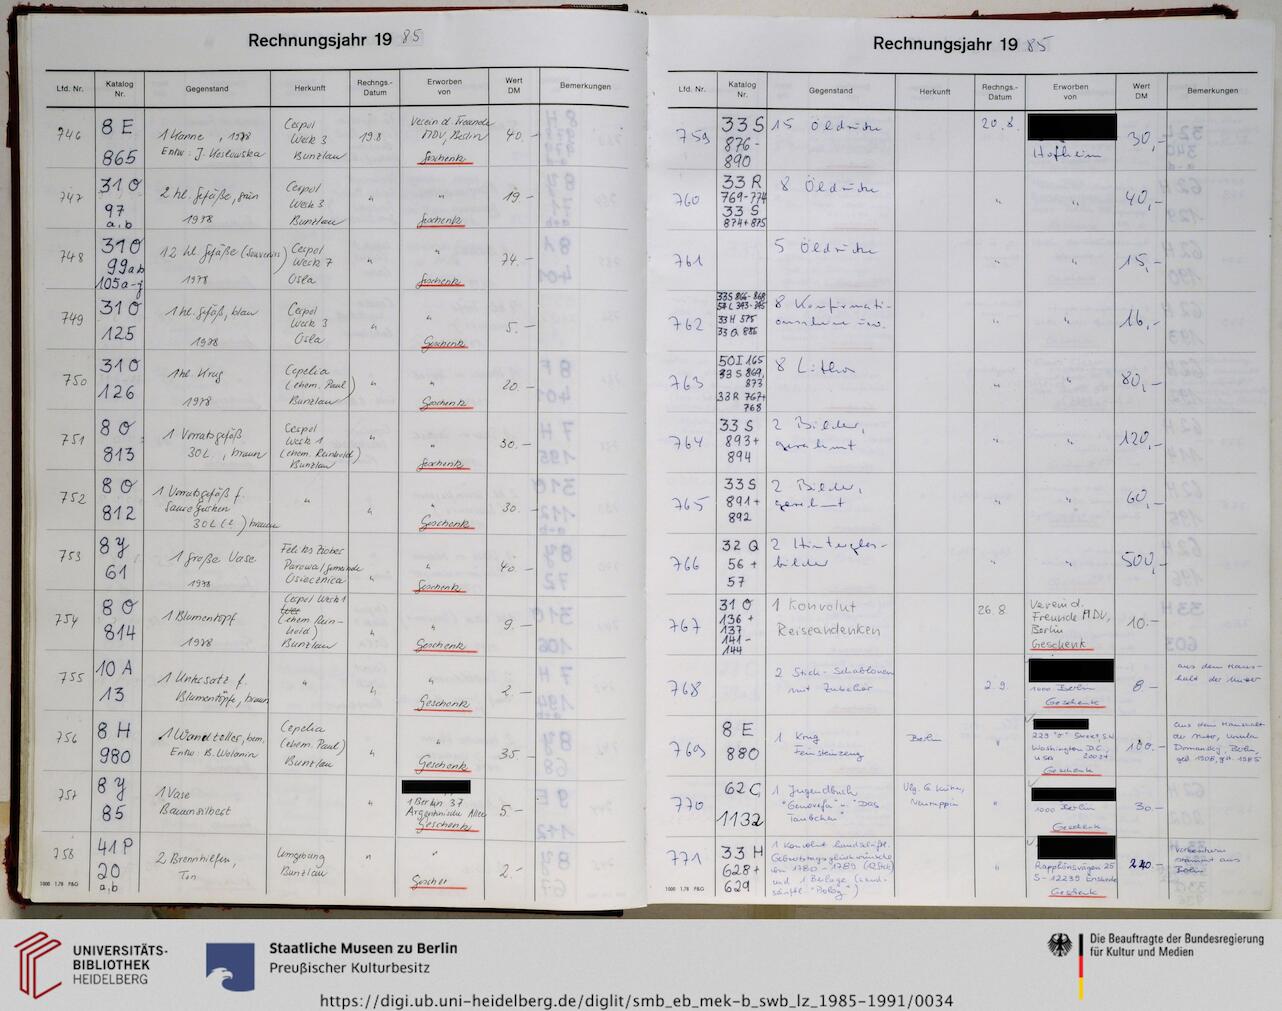 Rechnungsjahr 19 85
Lfd. Nr. Katalog Nr. Gegenstand Herkunft Rechngs.-Datum Erworben von Wert DM Bemerkungen
746 8 E 865 1 Kanne, 1978 Entw: J. Koslowska Cespol Werk 3 Bunzlau 19.8 Verein d. Freunde MDV, Berlin Geschenk 40.-
747 31 O 97 a,b 2 kl. Gefäße, grün 1978 Cespol Werk 3 Bunzlau " " Geschenk 19.-
748 31 O 99ab 105a-j 12 kl. Gefäße (Souvenirs) 1978 Cespol Werk 7 Osla " " Geschenk 74.-
749 31 O 125 1 kl. Gefäß, blau 1978 Cespol Werk 3 Osla " " Geschenk 5.-
750 31 O 126 1 kl. Krug 1978 Cepelia (ehem. Paul) Bunzlau " " Geschenk 20.-
751 8 O 813 1 Vorratsgefäß 30 L., braun Cespol Werk 1 (ehem. Reinhold) Bunzlau " " Geschenk 30.-
752 8 O 812 1 Vorratsgefäß f. Saure Gurken 30 L braun " " " Geschenk 30.-
753 8 y 61 1 große Vase 1978 Parowa/Gemeinde Osiecznica " " Geschenk 40.-
754 8 O 814 1 Blumentopf 1978 Cespol Werk 1 (ehem. Reinhold) Bunzlau " " Geschenk 9.-
755 10 A 13 1 Untersatz f. Blumentöpfe, braun " " " Geschenk 2.-
756 8 H 980 1 Wandteller, bem. Entw. B. Wolanin Cepelia (ehem. Paul) Bunzlau " " Geschenk 35.-
757 8 y 85 1 Vase " 1 Berlin 37 Argentinische Allee Geschenk 5.-
758 41 P 20 a,b 2 Brennhilfen, Ton Umgebung Bunzlau " " 2.-
1000 1.78 P&G
Rechnungsjahr 19 85
Lfd. Nr. Katalog Nr. Gegenstand Herkunft Rechngs.-Datum Erworben von Wert DM Bemerkungen
759 33 S 876-890 15 Öldrucke 20.8. Hofheim 30,-
760 33 R 769-774 33 S 874+875 8 Öldrucke " " 40,-
761 5 Öldrucke " " 15,-
762 33 S 866-868 33 H 575 33 Q 8 Konfirmations- " " 16,-
763 50 I 165 33 S 869, 873 33 R 767+768 8 Lithos " " 80,-
764 33 S 893+894 2 Bilder, gerahmt " " 120,-
765 33 S 891+892 2 Bilder, gerahmt " " 60,-
766 32 Q 56+57 2 Hinterglasbilder " " 500,-
767 31 O 136+137 141-144 1 Konvolut Reiseandenken 26 8 Verein d. Freunde MDV, Berlin Geschenk 10.-
768 2 Stick-Schablonen mit Zubehör 2.9. 1000 Berlin Geschenk 8.- aus dem Haushalt der Mutter
769 8 E 880 1 Krug Feinsteinzeug Berlin " 229 "O" Street, SW Washington D.C., USA Geschenk 100.- aus dem Haushalt der Mutter, Domansky, Berlin, geb. 1908, gest. 1985
770 62 C 1132 1 Jugendbuch "Genovefa" u. "Das Täubchen" Vlg. G. Kühn, Neuruppin " 1000 Berlin Geschenk 30.-
771 33 H 628+629 1 Konvolut handschriftl. Geburtstagsglückwünsche von 1780-1789 und 1 Beilage Rapphönsvägen 25 S-12239 Enskede Geschenk 240.-
1000 1.78 P&G
UNIVERSITÄTS-
BIBLIOTHEK
HEIDELBERG
Staatliche Museen zu Berlin
Preußischer Kulturbesitz
Die Beauftragte der Bundesregierung
für Kultur und Medien
https://digi.ub.uni-heidelberg.de/diglit/smb_eb_mek-b_swb_lz_1985-1991/0034